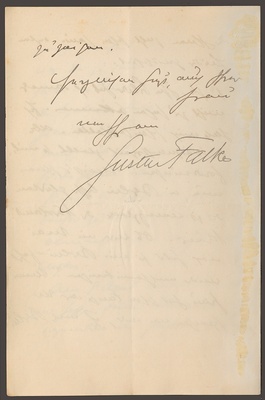 zu zeigen.
Herzlichen Gruß, auch Ihrer
Frau
von Ihrem
Gustav Falke